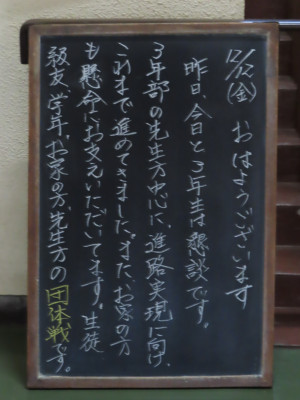 12/12(金) おはようございます
昨日、今日と3年生は懇談です。
3年部の先生方中心に、進路実現に向け、
これまで進めてきました。また、お家の方
も懸命にお支えいただいてます。生徒
級友、学年、お家の方、先生方の団体戦です。